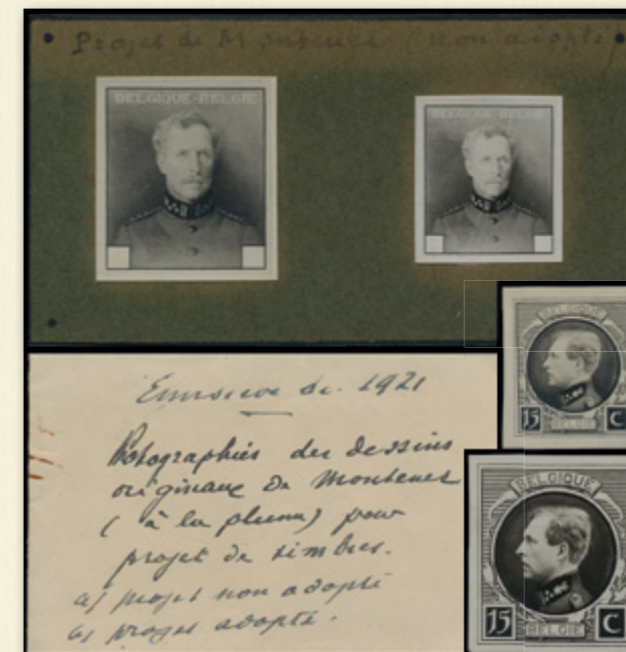 Projet de Montenez (non adopté)
BELGIQUE-BELGIE
BELGIQUE-BELGIE
Emission de 1921
Photographies des dessins
originaux de Montenez
(à la plume) pour
projet de timbres.
a) projet non adopté
b) projet adopté.
BELGIQUE
15 C
BELGIE
BELGIQUE
15 C
BELGIE